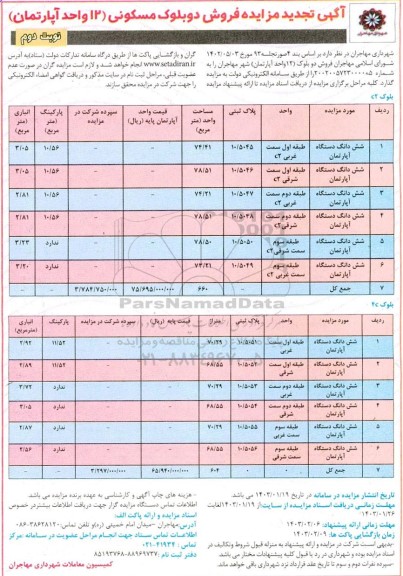 آگهی تجدید مزایده فروش دوبلوک مسکونی (۱۲ واحد آپارتمان)
نوبت دوم
شهرداری مهاجران در نظر دارد بر اساس بند ۴ صورتجلسه ۹۳ مورخ ۱۴۰۲/۰۵/۰۳
شورای اسلامی مهاجران فروش دو بلوک (۱۲ واحد آپارتمان) شهر مهاجران را به
شماره ۲۰۰۲۰۰۵۷۲۳۰۰۰۰۰۵ از طریق سامانه الکترونیکی دولت به مزایده
گذارد. کلیه مراحل برگزاری مزایده از دریافت اسناد مزایده تا ارائه پیشنهاد مزایده
گران و بازگشایی پاکت ها از طریق درگاه سامانه تدارکات دولت (ستاد) به آدرس
www.setadiran.ir انجام خواهد شد و لازم است مزایده گران در صورت عدم
عضویت قبلی، مراحل ثبت نام در سایت مذکور و دریافت گواهی امضاء الکترونیکی
را جهت شرکت در مزایده محقق سازند.
بلوک c۲
ردیف مورد مزایده واحد پلاک ثبتی مساحت واحد (متر مربع) قیمت واحد آپارتمان پایه (ریال) سپرده شرکت در مزایده پارکینگ (متر مربع) انباری (متر مربع)
۱ شش دانگ دستگاه آپارتمان طبقه اول سمت غربی c۲ ۱۰/۵۰۴۵ ۷۴/۴۱ - - ۱۰/۵۶ ۳/۰۵
۲ شش دانگ دستگاه آپارتمان طبقه اول سمت شرقی c۲ ۱۰/۵۰۴۶ ۷۸/۵۱ - - ۱۰/۵۶ ۳/۰۵
۳ شش دانگ دستگاه آپارتمان طبقه دوم سمت غربی c۲ ۱۰/۵۰۴۷ ۷۴/۲۱ - - ۱۰/۵۶ ۲/۸۱
۴ شش دانگ دستگاه آپارتمان طبقه دوم سمت شرقی c۲ ۱۰/۵۰۴۸ ۷۸/۵۱ - - ۱۰/۵۶ ۲/۸۱
۵ شش دانگ دستگاه آپارتمان طبقه سوم سمت شرقی c۲ ۱۰/۵۰۵۰ ۷۸/۵۰ - - ندارد ۳/۲۳
۶ شش دانگ دستگاه آپارتمان طبقه سوم سمت غربی c۲ ۱۰/۵۰۴۹ ۷۳/۲۱ - - ندارد ۳/۲۰
۷ جمع کل - - ۶۶۰ ۷۵/۶۹۵/۰۰۰/۰۰۰ ۳/۷۸۴/۷۵۰/۰۰۰ - -
ParsNamadData
۰۲۱-۸۸۳۴۹۶۷۰-۵
بلوک c۴
ردیف مورد مزایده واحد پلاک ثبتی متراژ قیمت پایه (ریال) سپرده شرکت در مزایده پارکینگ انباری (مترمربع)
۱ شش دانگ دستگاه آپارتمان طبقه اول سمت غربی ۱۰/۵۰۵۱ ۷۰/۲۹ - - ۱۱/۵۲ ۲/۹۲
۲ شش دانگ دستگاه آپارتمان طبقه اول سمت شرقی ۱۰/۵۰۵۲ ۶۸/۵۵ - - ۱۱/۵۲ ۴/۸۹
۳ شش دانگ دستگاه آپارتمان طبقه دوم سمت غربی ۱۰/۵۰۵۳ ۷۰/۲۹ - - ندارد ۳/۷۲
۴ شش دانگ دستگاه آپارتمان طبقه دوم سمت شرقی ۱۰/۵۰۵۴ ۶۸/۵۵ - - ندارد ۳/۰۵
۵ شش دانگ دستگاه آپارتمان طبقه سوم سمت غربی ۱۰/۵۰۵۵ ۷۰/۲۹ - - ندارد ۲/۸۷
۶ شش دانگ دستگاه آپارتمان طبقه سوم سمت شرقی ۱۰/۵۰۵۶ ۶۸/۵۵ - - ندارد ۴/۵۶
۷ جمع کل - - ۶۰۴ ۶۵/۹۴۰/۰۰۰/۰۰۰ ۳/۲۹۷/۰۰۰/۰۰۰ - -
تاریخ انتشار مزایده در سامانه در تاریخ ۱۴۰۳/۰۱/۱۹ می باشد.
مهلت زمانی دریافت اسناد مزایده از سایت: از ۱۴۰۳/۰۱/۱۹ لغایت
۱۴۰۳/۰۱/۲۶
مهلت زمانی ارائه پیشنهاد: ۱۴۰۳/۰۲/۰۶
زمان بازگشایی پاکت ها: ۱۴۰۳/۰۲/۰۹
-بدیهی است، شرکت در مزایده و ارائه پیشنهاد به منزله قبول شروط و تکالیف در
اسناد مزایده بوده و شهرداری در رد یا قبول کلیه پیشنهادات مختار می باشد
-سپرده نفرات دوم و سوم تا تاریخ عقد قرارداد نزد شهرداری باقی خواهد ماند.
- هزینه های چاپ آگهی و کارشناسی به عهده برنده مزایده می باشد.
اطلاعات تماس دستگاه مزایده گزار جهت دریافت اطلاعات بیشتر در خصوص
اسناد مزایده و ارائه پاکت الف:
آدرس: مهاجران -میدان امام خمینی (ره) و تلفن تماس: ۳۸۶۲۸۱۲-۰۸۶
اطلاعات تماس ستاد جهت انجام مراحل عضویت در سامانه: مرکز
تماس: ۴۱۹۳۴-۰۲۱
دفتر ثبت نام: ۸۸۹۶۹۷۳۷-۸۵۱۹۳۷۶۸
کمیسیون معاملات شهرداری مهاجران